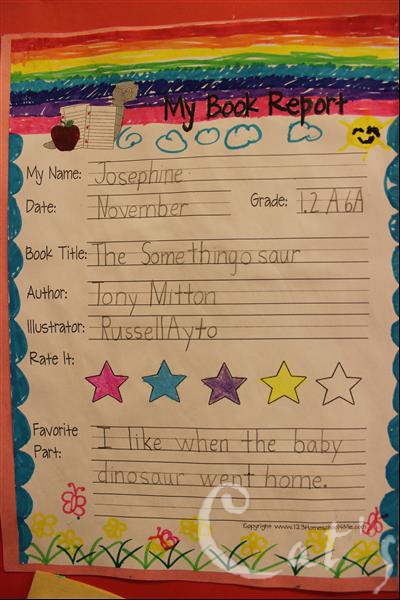 My Book Report
My Name: Josephine
Date: November Grade: 1.2 A 6A
Book Title: The Somethingosaur
Author: Tony Mitton
Illustrator: Russell Ayto
Rate It:
Favorite Part: I like when the baby
dinosaur went home.
Copyright www.123Homeschool4Me.com
Cat's